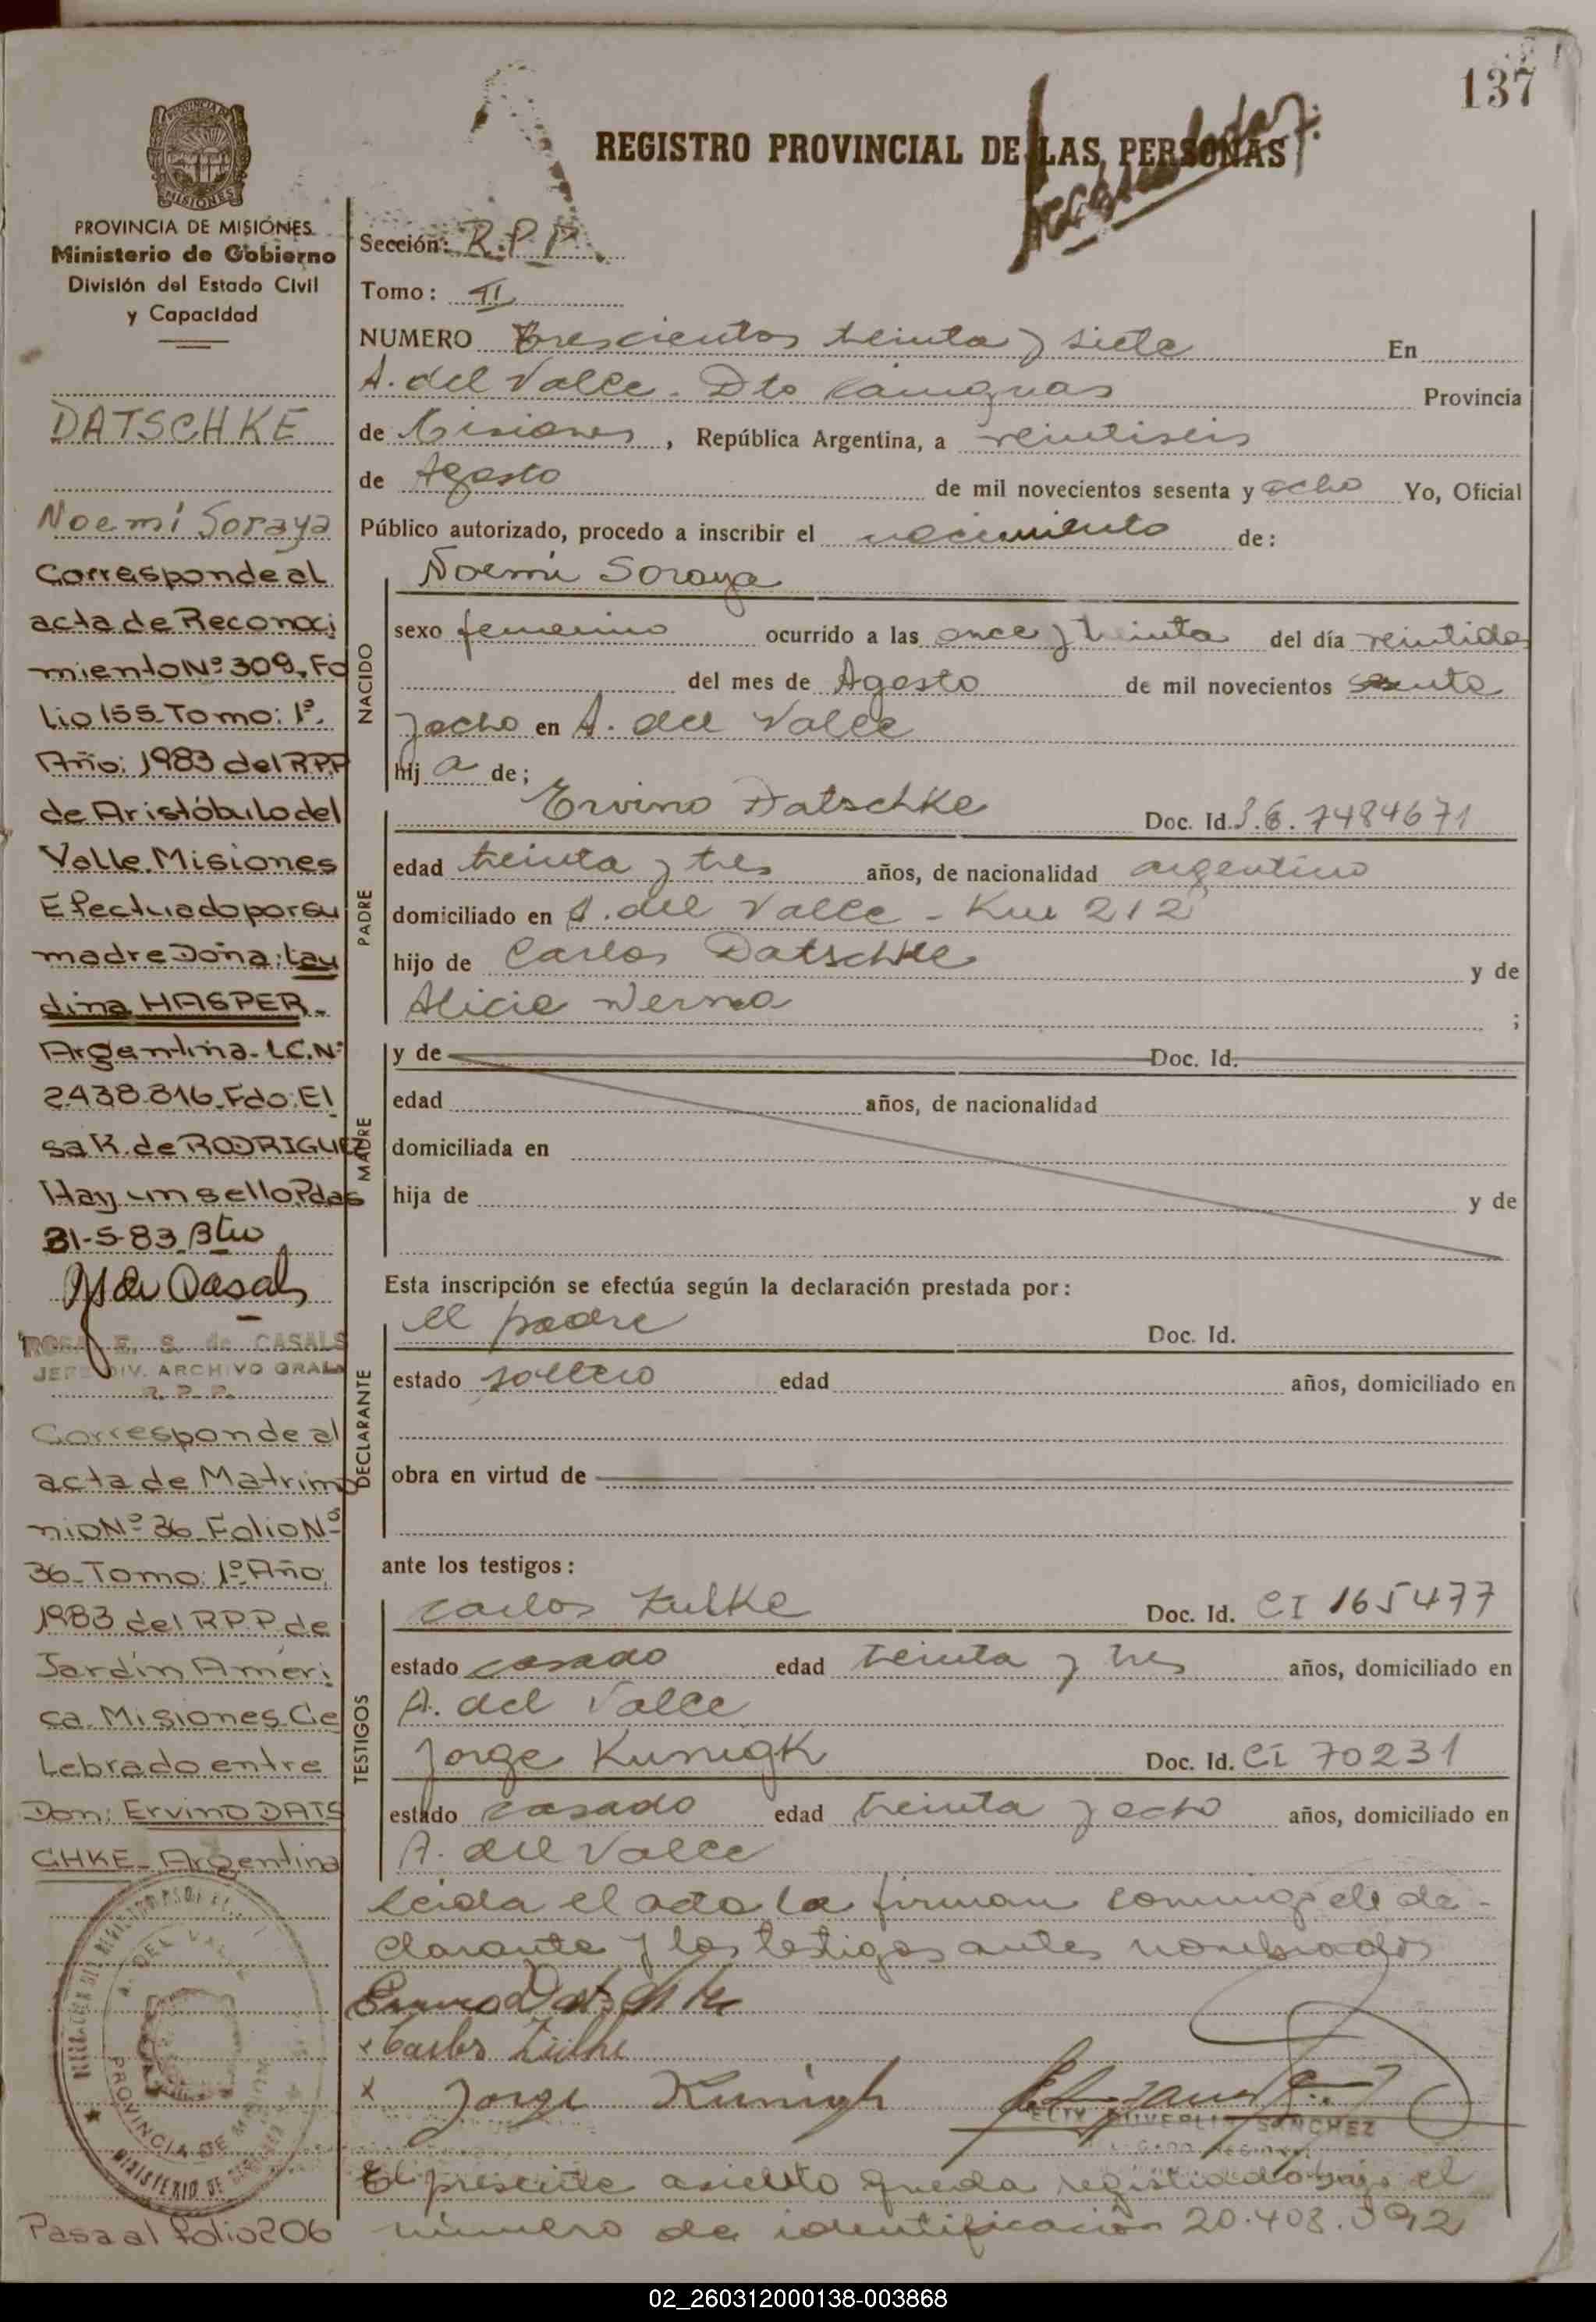 137
REGISTRO PROVINCIAL DE LAS PERSONAS
PROVINCIA DE MISIONES
Ministerio de Gobierno
División del Estado Civil
y Capacidad
DATSCHKE
Noemí Soraya
Corresponde al
acta de Reconoci
miento Nº 309, Fo
lio 155 Tomo: 1º.
Año: 1983 del R.P.P
de Aristóbulo del
Valle. Misiones
Efectuado por su
madre Doña: Lau
dina HASPER.-
Argentina- L.C.Nº
2.438.816. Fdo: El
sa K. de RODRIGUEZ
Hay un sello Pdas
31-5-83
ROSA E. S. de CASALS
JEFE DIV. ARCHIVO GRAL
R. P. P.
Corresponde al
acta de Matrimo
nio Nº 36 Folio Nº
36- Tomo: 1º Año:
1983 del R.P.P. de
Jardín Améri
ca. Misiones Ce
lebrado entre
Don: Ervino DATS
CHKE- Argentina
A. DEL VALLE
PROVINCIA DE MISIONES
MINISTERIO DE
Pasa al folio 206
Sección: R.P.P.
Tomo: II
NUMERO Trescientos treinta y siete En
A. del Valle. Dto Cainguas Provincia
de Misiones, República Argentina, a veintiseis
de Agosto de mil novecientos sesenta y ocho Yo, Oficial
Público autorizado, procedo a inscribir el nacimiento de:
NACIDO
Noemi Soraya
sexo femenino ocurrido a las once y treinta del día veintidos
del mes de Agosto de mil novecientos sesenta
y ocho en A. del Valle
hij a de;
PADRE
Ervino Datschke Doc. Id. 7484671
edad treinta y tres años, de nacionalidad argentino
domiciliado en A. del Valle - Km 212
hijo de Carlos Datschke y de
Alicia ;
MADRE
y de Doc. Id.
edad años, de nacionalidad
domiciliada en
hija de y de
Esta inscripción se efectúa según la declaración prestada por:
DECLARANTE
el padre Doc. Id.
estado soltero edad años, domiciliado en
obra en virtud de
ante los testigos:
TESTIGOS
Carlos Zulke Doc. Id. CI 165477
estado casado edad treinta y tres años, domiciliado en
A. del Valle
Jorge Kunigk Doc. Id. CI 70231
estado casado edad treinta y ocho años, domiciliado en
A. del Valle
Leida el acta la firman conmigo el de-
clarante y los testigos antes nombrados
Ervino Datschke
x Carlos Zülke
x Jorge Kunigk
SANCHEZ
El presente asiento queda registrado bajo el
número de identificación 20.408.
02_260312000138-003868